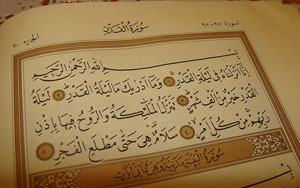 الجزء ٣٠ سورة القدر السورة ٩٧-٩٨
بسم الله الرحمن الرحيم
إِنَّا أَنزَلْنَاهُ فِي لَيْلَةِ الْقَدْرِ ١ وَمَا أَدْرَاكَ مَا لَيْلَةُ الْقَدْرِ ٢ لَيْلَةُ
الْقَدْرِ خَيْرٌ مِنْ أَلْفِ شَهْرٍ ٣ تَنَزَّلُ الْمَلَائِكَةُ وَالرُّوحُ فِيهَا بِإِذْنِ
رَبِّهِمْ مِنْ كُلِّ أَمْرٍ ٤ سَلَامٌ هِيَ حَتَّى مَطْلَعِ الْفَجْرِ ٥
سورة البينة